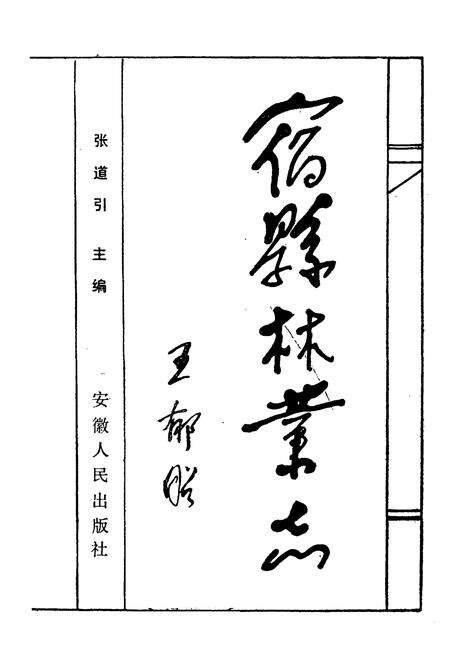 宿縣林業志
王郁昭
张道引 主编
安徽人民出版社